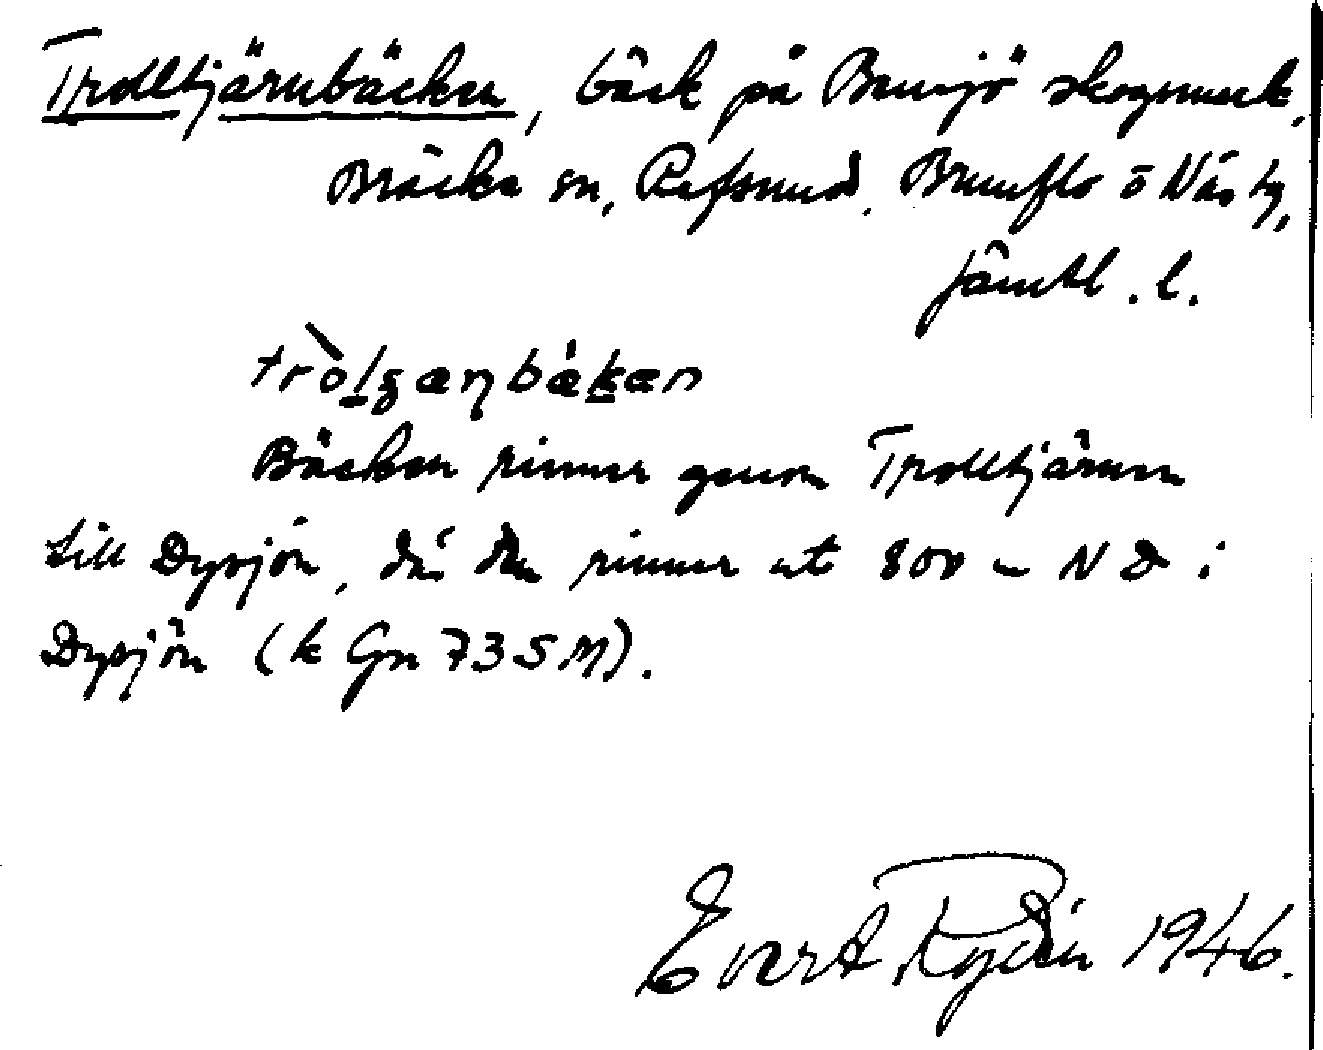 Trolltjärnbäcken, bäck på Bensjö skogsmark,
Bräcke sn, Refsund, Brunflo o Näs tg,
Jämtl. l.
Bäcken rinner genom Trolltjärnen
till Dysjön, där den rinner ut 800 m N Ö i
Dysjön (k Gn 73 5 M).
Evert 1946.